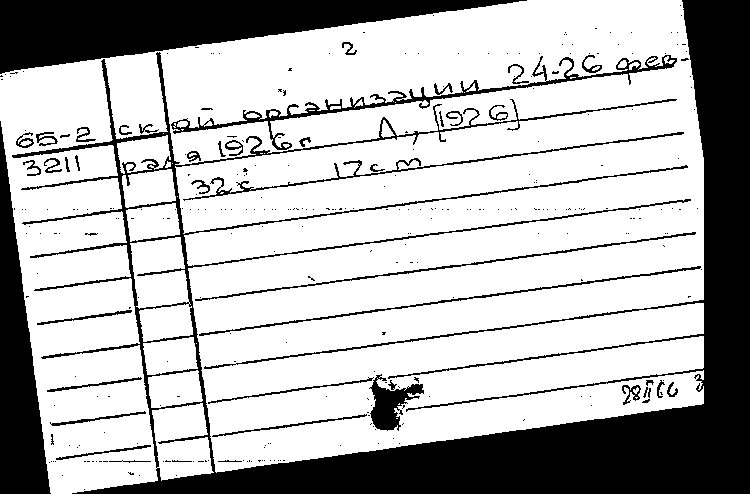 2
65-2 ской организации 24-26 фев-
3211 раля 1926 г. Л., [1926]
32 с. 17 см
28 II 66